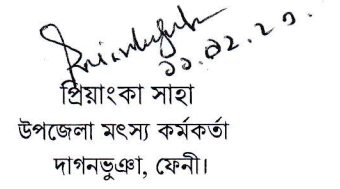 প্রিয়াংকা সাহা
উপজেলা মৎস্য কর্মকর্তা
দাগনভুঞা, ফেনী।